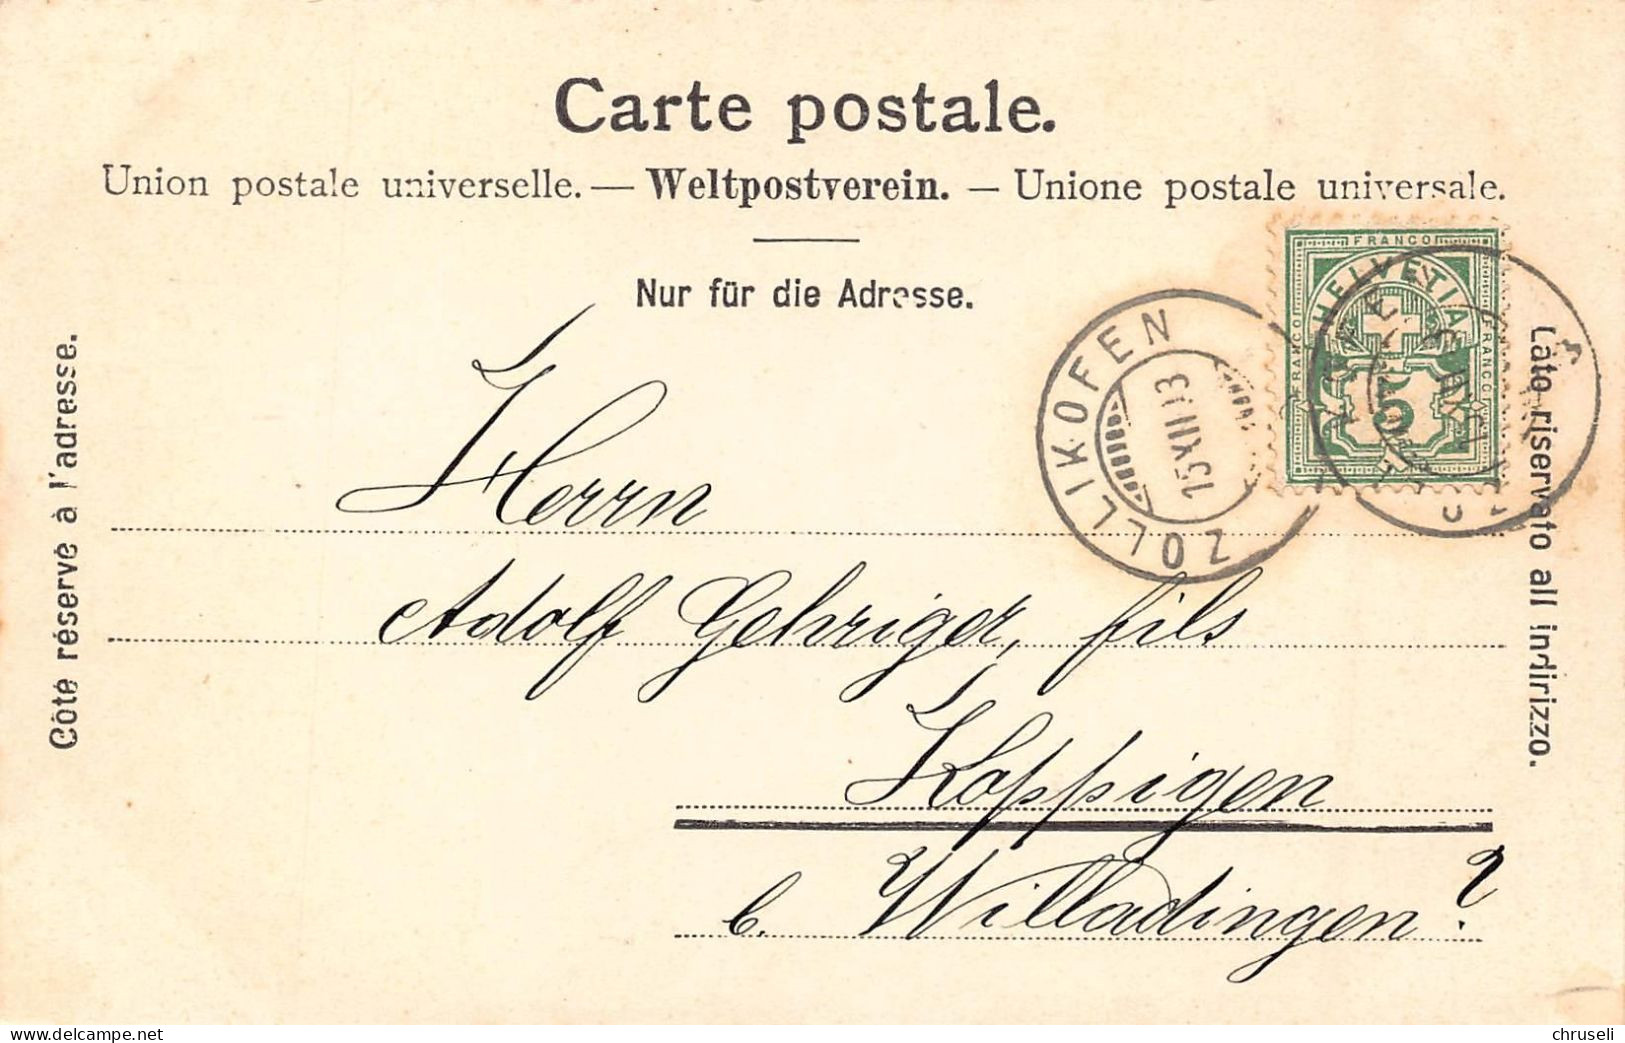 Carte postale.
Union postale universelle. — Weltpostverein. — Unione postale universale.
Nur für die Adresse.
Côté réservé à l'adresse.
Lato riservato all indirizzo.
FRANCO
HELVETIA
FRANCO
FRANCO
5
ZOLLIKOFEN
15 XII 03
Herrn
Adolf Gehriger, fils
Koppigen
b. Willadingen?
www.delcampe.net
chruseli